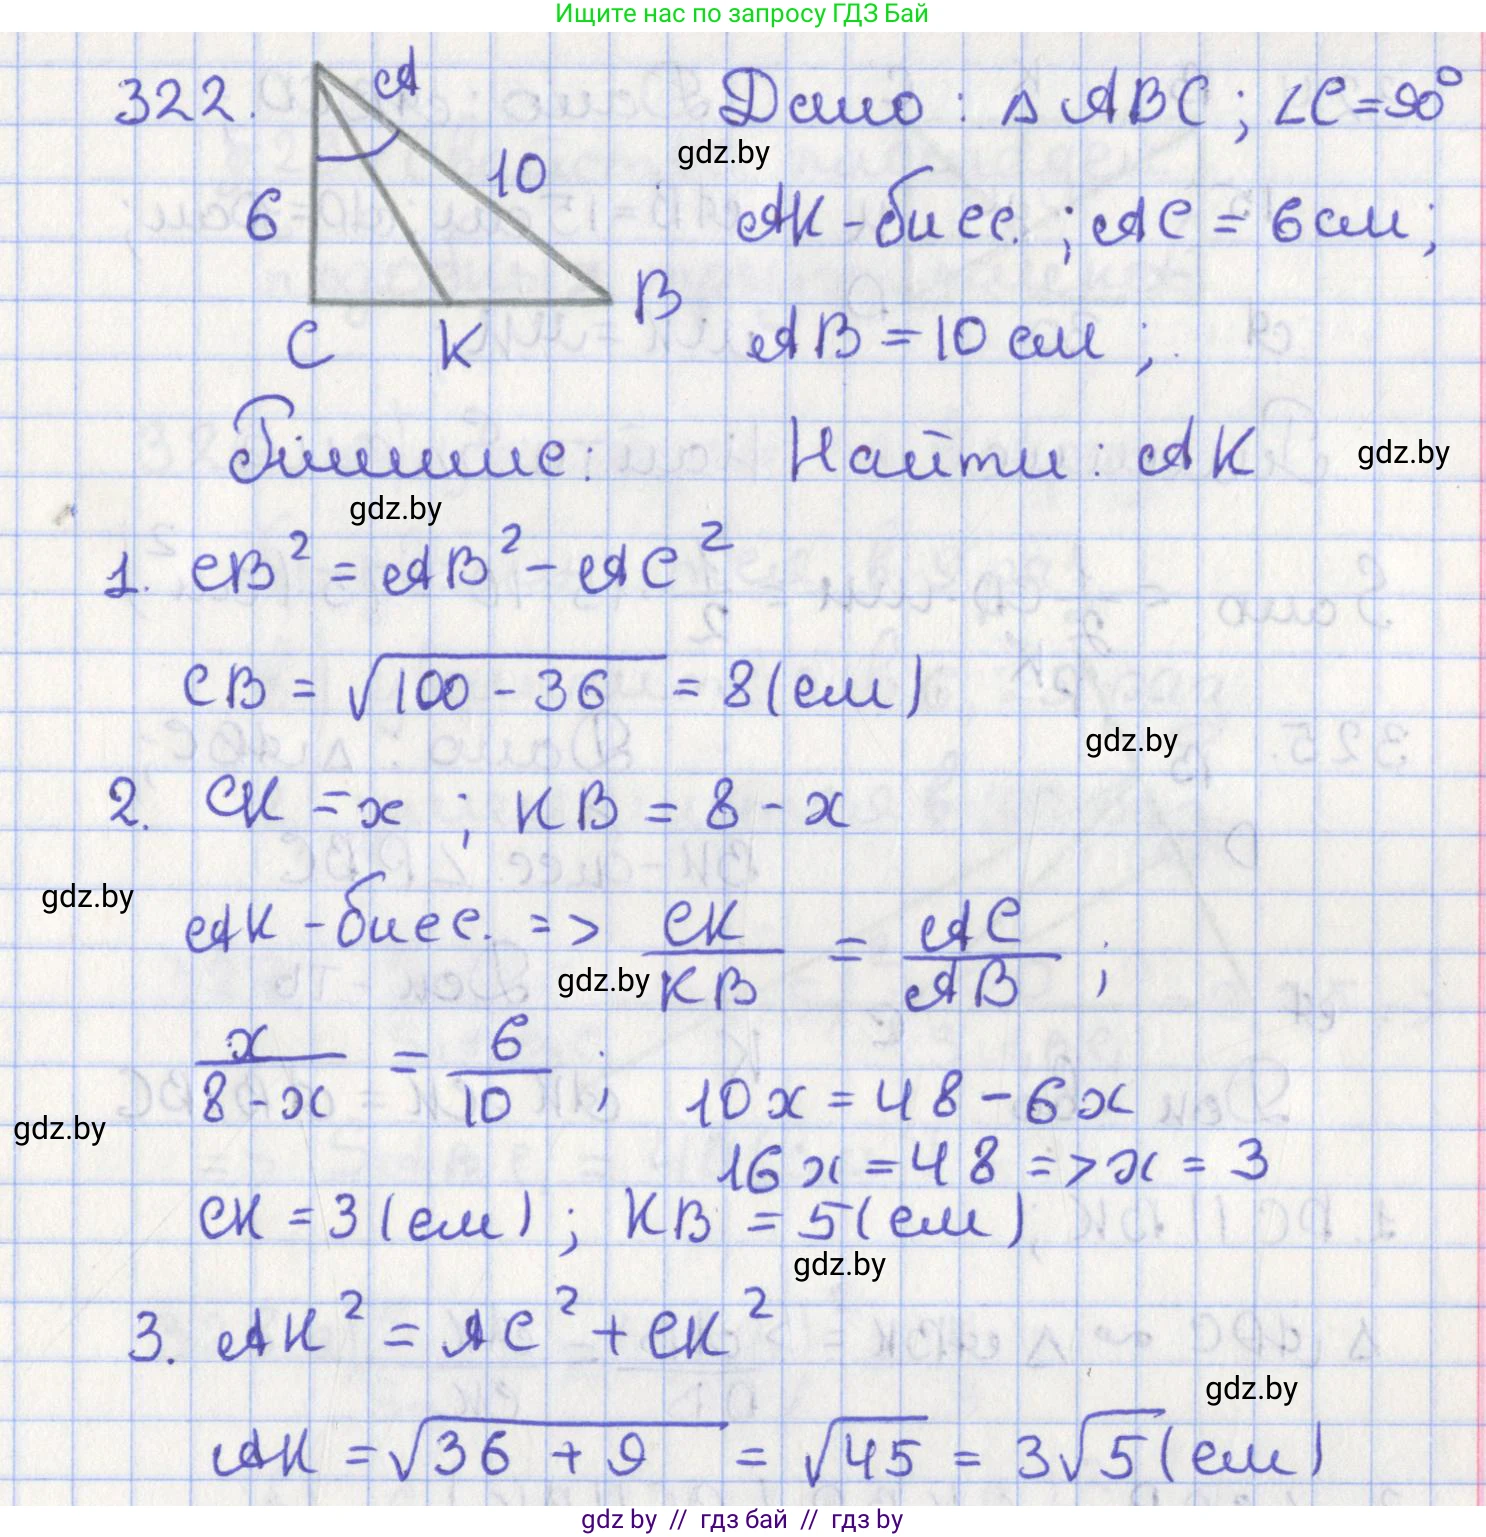 Ищите нас по запросу ГДЗ Бай
322.
A
6
10
C
K
B
Дано: △ABC; ∠C=90°
gdz.by
AK-бисс.; AC = 6см;
AB = 10 см;
Решение:
Найти: AK
gdz.by
gdz.by
1. CB² = AB² - AC²
CB = √100 - 36 = 8(см)
gdz.by
2. CK = x; KB = 8 - x
gdz.by
AK - бисс. => CK/KB = AC/AB;
gdz.by
x/8-x = 6/10; 10x = 48 - 6x
gdz.by
16x = 48 => x = 3
CK = 3(см); KB = 5(см)
gdz.by
3. AK² = AC² + CK²
gdz.by
AK = √36 + 9 = √45 = 3√5(см)
gdz.by // гдз бай // гдз by